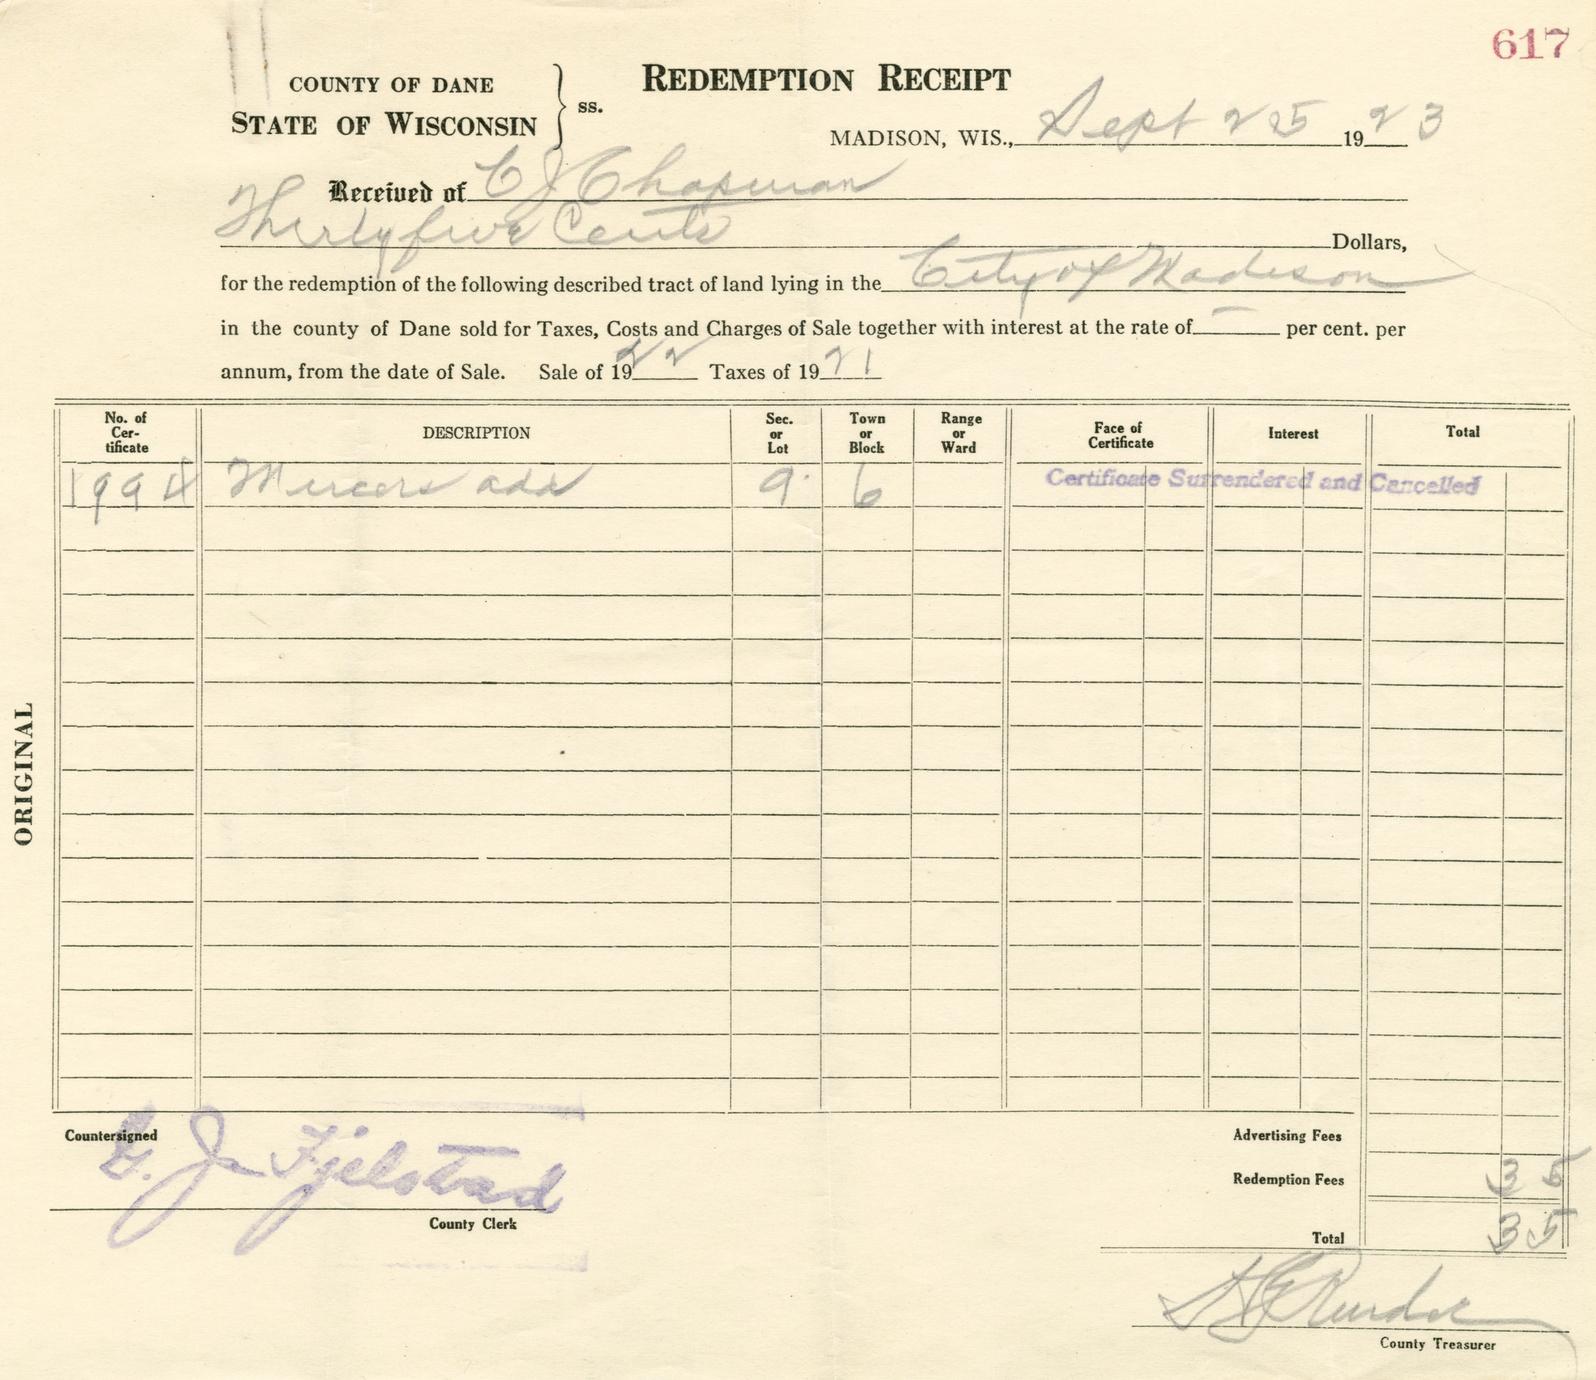 617
COUNTY OF DANE
STATE OF WISCONSIN
ss.
REDEMPTION RECEIPT
MADISON, WIS., Sept 25 1923
Received of C J Chapman
Thirty five Cents Dollars,
for the redemption of the following described tract of land lying in the City of Madison
in the county of Dane sold for Taxes, Costs and Charges of Sale together with interest at the rate of — per cent. per
annum, from the date of Sale. Sale of 1922 Taxes of 1921
No. of Cer-tificate DESCRIPTION Sec. or Lot Town or Block Range or Ward Face of Certificate Interest Total
1994 Mercers add 9 6 Certificate Surrendered and Cancelled
ORIGINAL
Countersigned
G. J. Fjelstad
County Clerk
Advertising Fees
Redemption Fees 35
Total 35
County Treasurer